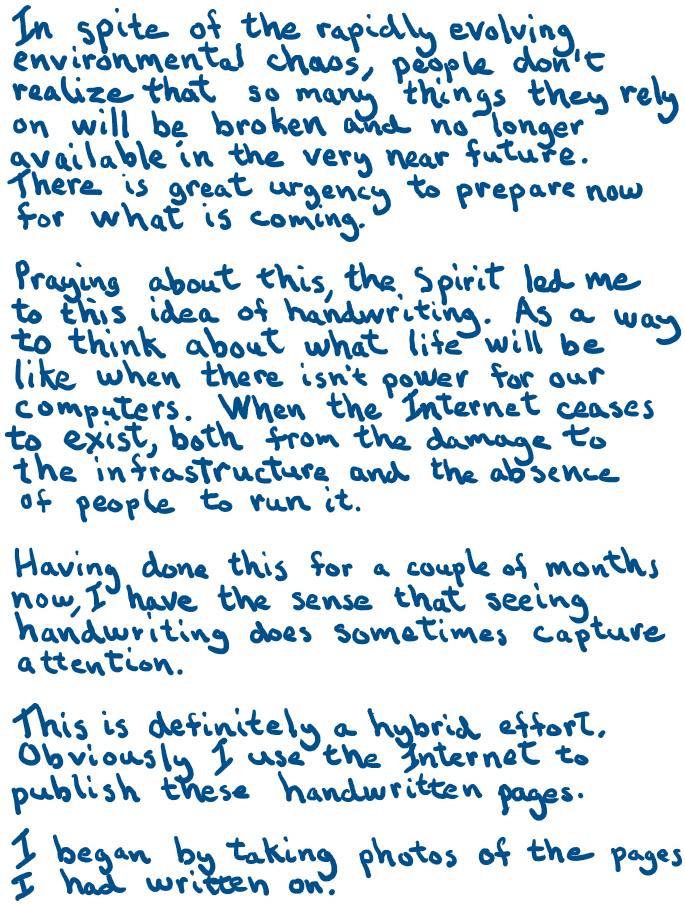 In spite of the rapidly evolving
environmental chaos, people don't
realize that so many things they rely
on will be broken and no longer
available in the very near future.
There is great urgency to prepare now
for what is coming.
Praying about this, the Spirit led me
to this idea of handwriting. As a way
to think about what life will be
like when there isn't power for our
computers. When the Internet ceases
to exist, both from the damage to
the infrastructure and the absence
of people to run it.
Having done this for a couple of months
now, I have the sense that seeing
handwriting does sometimes capture
attention.
This is definitely a hybrid effort.
Obviously I use the Internet to
publish these handwritten pages.
I began by taking photos of the pages
I had written on.